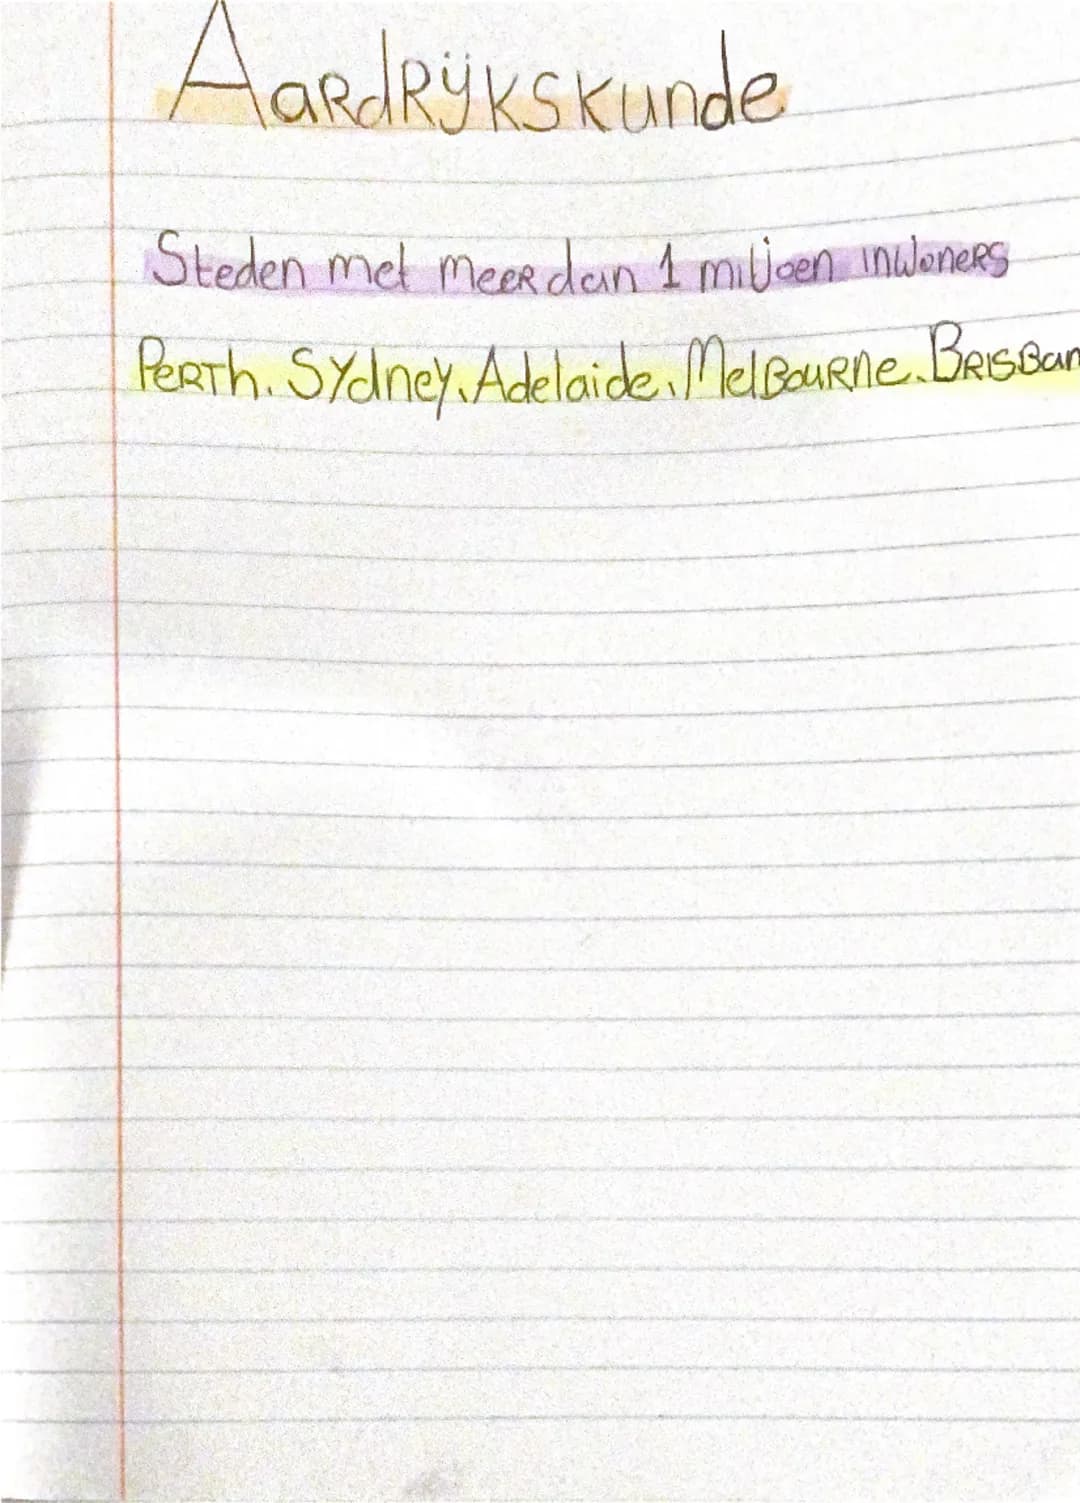 Aardrijkskunde
Steden met meer dan 1 miljoen inwoners
Perth, Sydney, Adelaide, Melbourne, Brisban